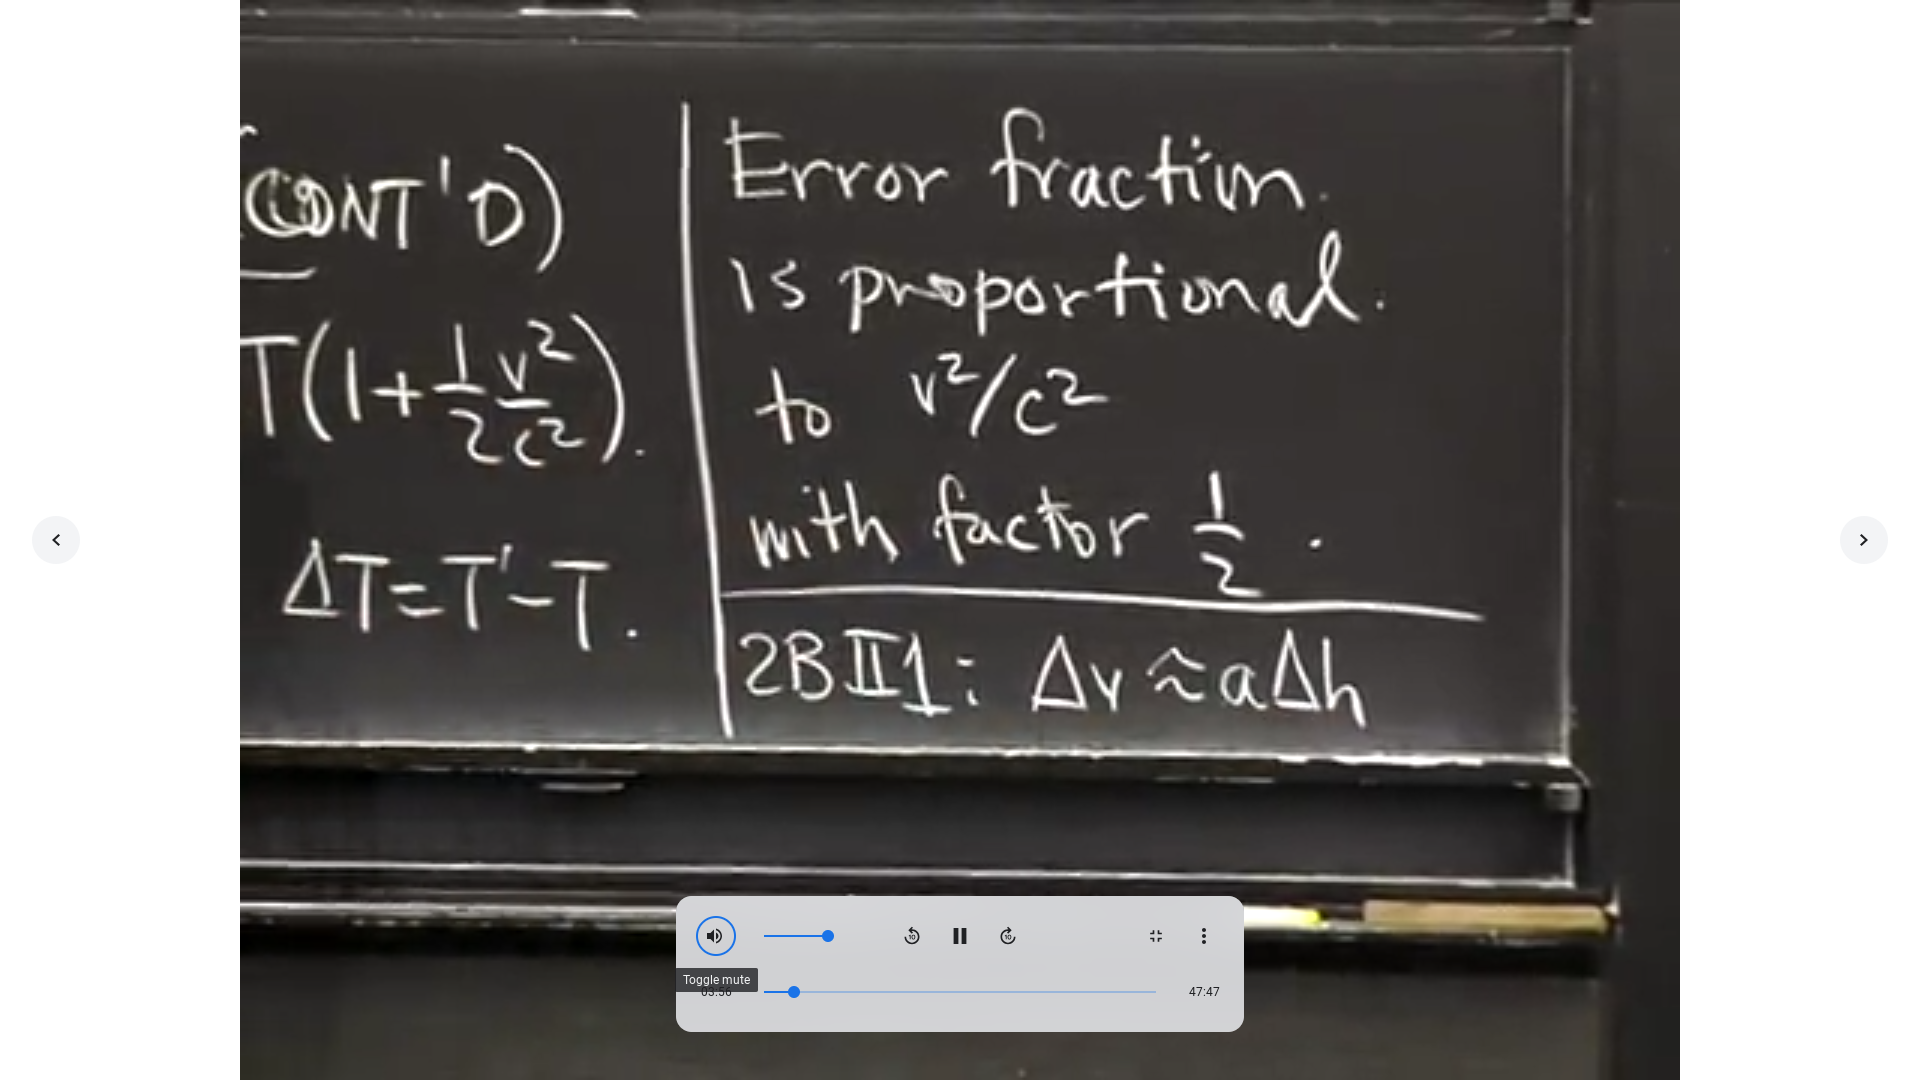 (CONT'D)
T(1+1/2 v²/c²).
ΔT=T'-T.
Error fraction.
is proportional.
to v²/c²
with factor 1/2.
2BII1: Δv≈aΔh
Toggle mute
03:56
47:47